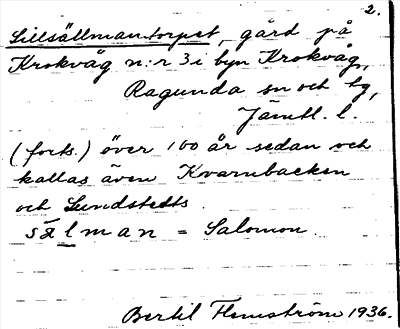 2.
Lillsällmantorpet, gård på
Krokvåg n:r 3 i byn Krokvåg,
Ragunda sn och tg,
Jämtl. l.
(forts.) över 100 år sedan och
kallas även Kvarnbacken
och Lundstedts.
sälman = Salomon.
Bertil Flemström 1936.